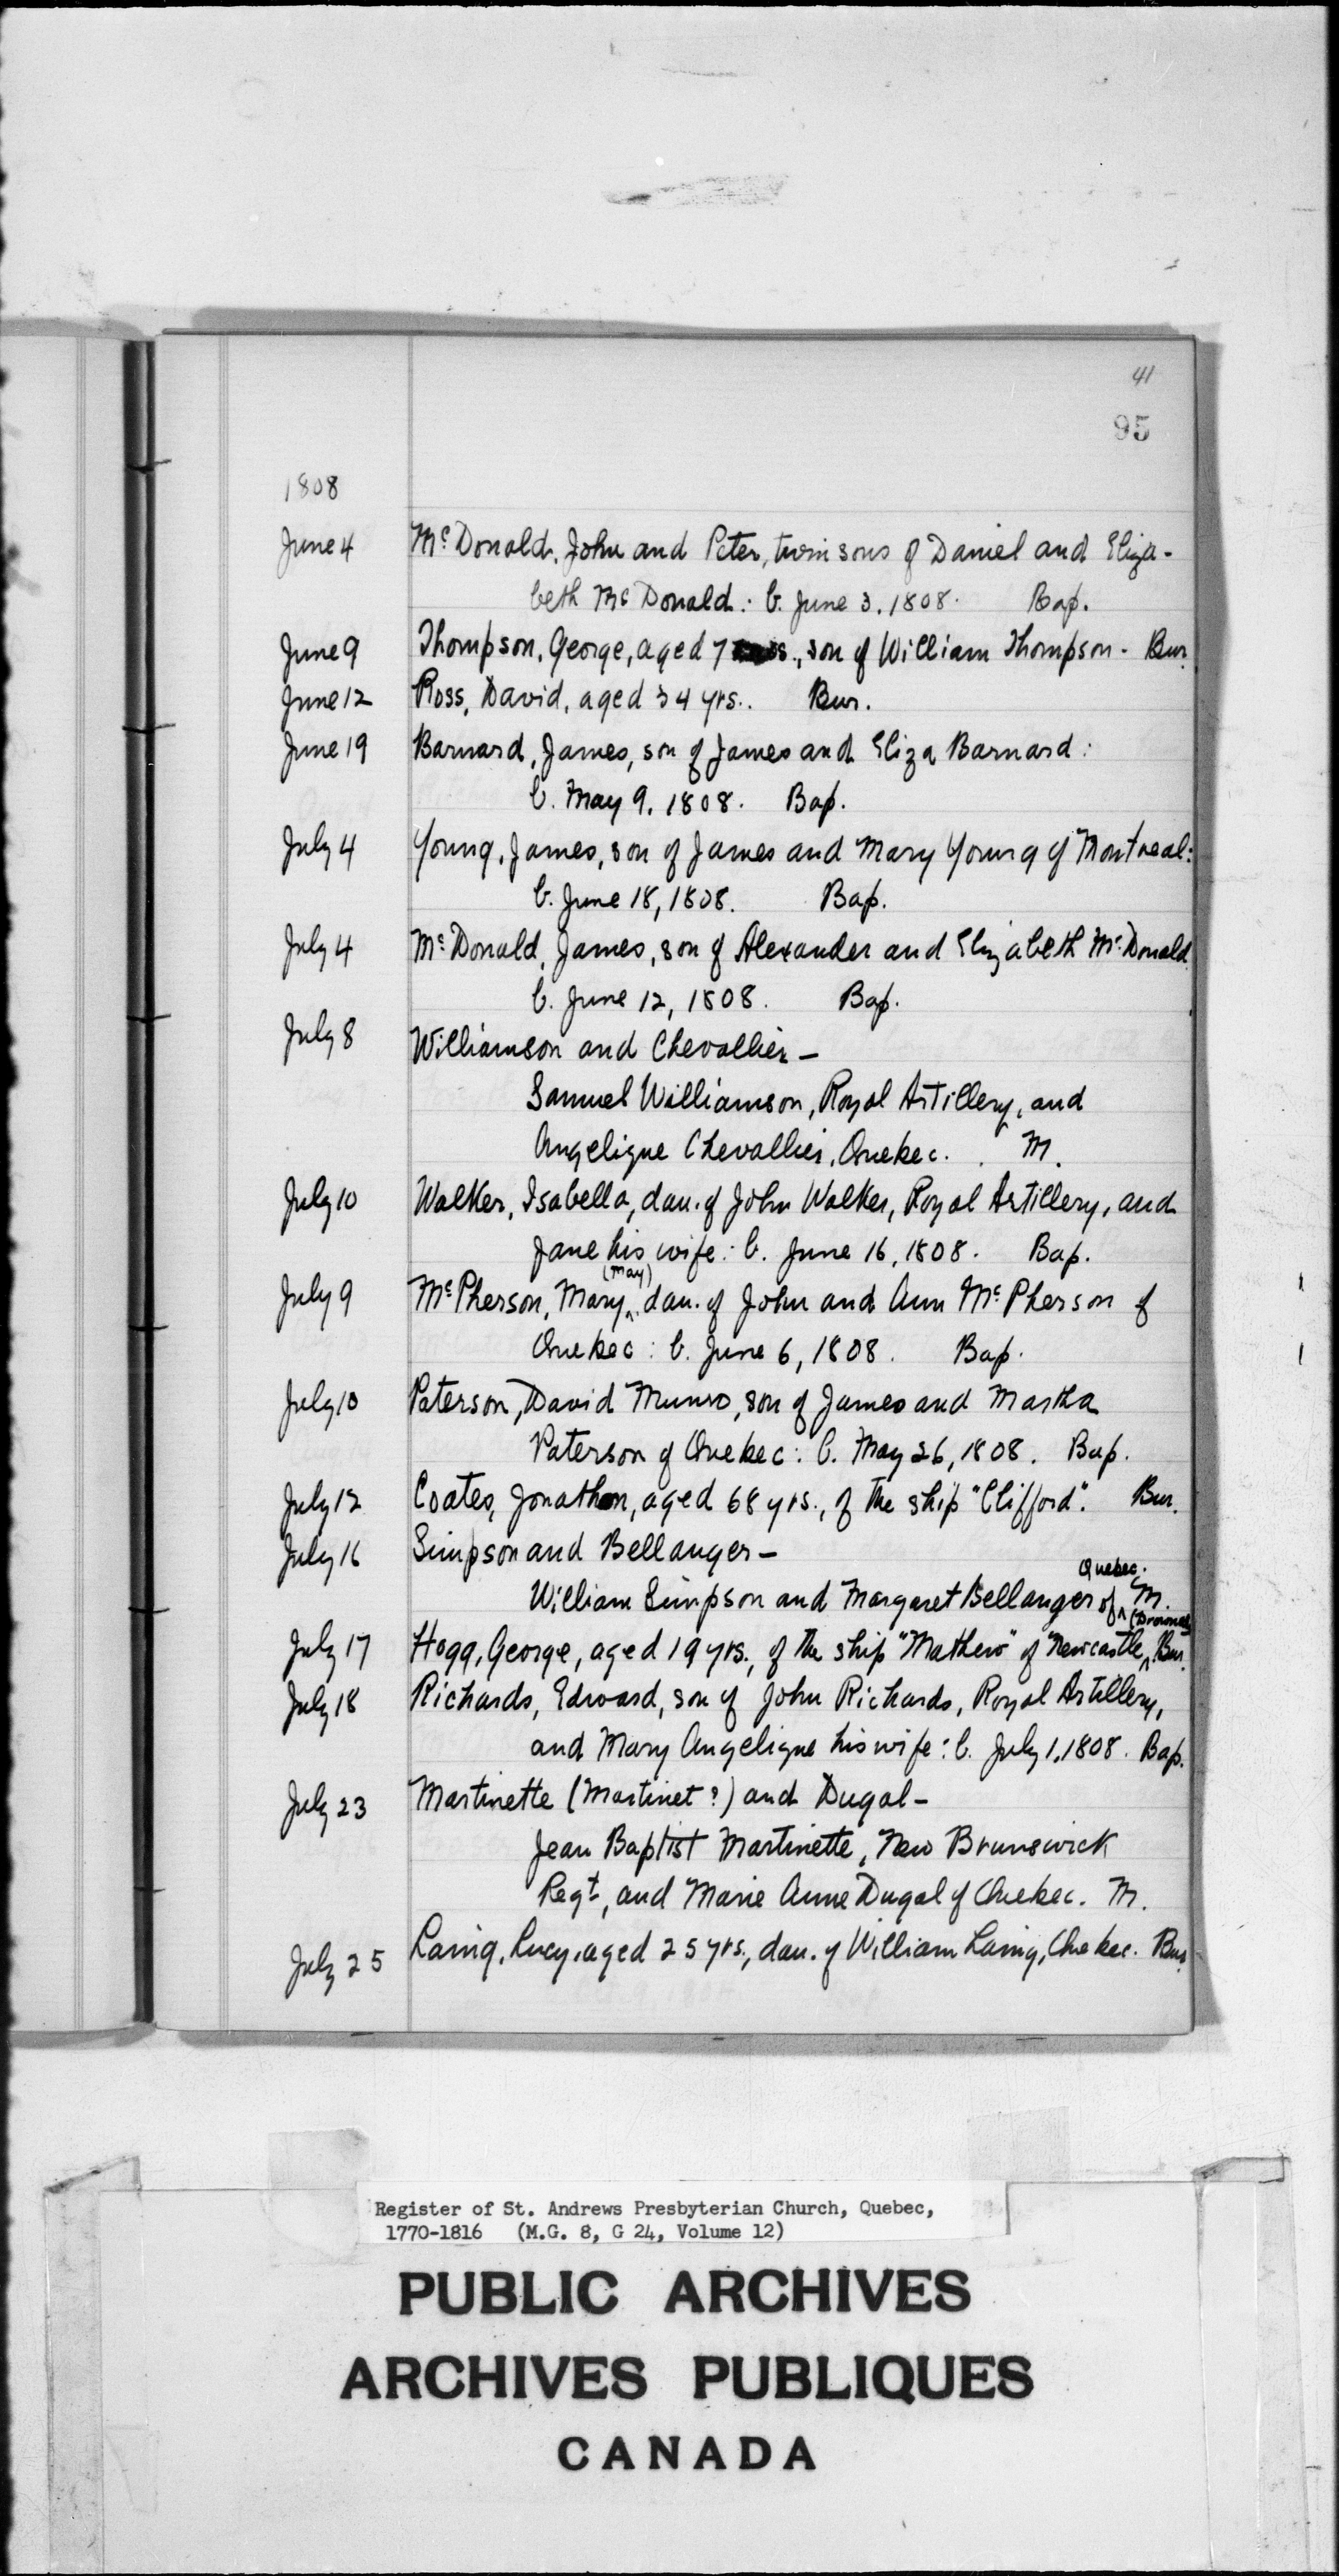 41
95
1808
June 4 McDonald, John and Peter, twin sons of Daniel and Eliza-
beth McDonald: b. June 3, 1808. Bap.
June 9 Thompson, George, aged 7 , son of William Thompson - Bur.
June 12 Ross, David, aged 34 yrs.. Bur.
June 19 Barnard, James, son of James and Eliza Barnard:
b. May 9, 1808. Bap.
July 4 Young, James, son of James and Mary Young of Montreal:
b. June 18, 1808. Bap.
July 4 McDonald, James, son of Alexander and Elizabeth McDonald
b. June 12, 1808. Bap.
July 8 Williamson and Chevallier -
Samuel Williamson, Royal Artillery, and
Angelique Chevallier, Quebec. M.
July 10 Walker, Isabella, dau. of John Walker, Royal Artillery, and
Jane his wife: b. June 16, 1808. Bap.
July 9 McPherson, Mary (May) dau. of John and Ann McPherson of
Quebec: b. June 6, 1808. Bap.
July 10 Paterson, David Munro, son of James and Martha
Paterson of Quebec: b. May 26, 1808. Bap.
July 12 Coates, Jonathon, aged 68 yrs., of the ship "Clifford". Bur.
July 16 Simpson and Bellanger -
William Simpson and Margaret Bellanger of Quebec. M.
July 17 Hogg, George, aged 19 yrs., of the ship "Mathew" of Newcastle, (Drowned) Bur.
July 18 Richards, Edward, son of John Richards, Royal Artillery,
and Mary Angelique his wife: b. July 1, 1808. Bap.
July 23 Martinette (Martinet?) and Dugal -
Jean Baptist Martinette, New Brunswick
Regt, and Marie Anne Dugal of Quebec. M.
July 25 Laing, Lucy, aged 25 yrs., dau. of William Laing, Quebec. Bur.
Register of St. Andrews Presbyterian Church, Quebec,
1770-1816 (M.G. 8, G 24, Volume 12)
PUBLIC ARCHIVES
ARCHIVES PUBLIQUES
CANADA